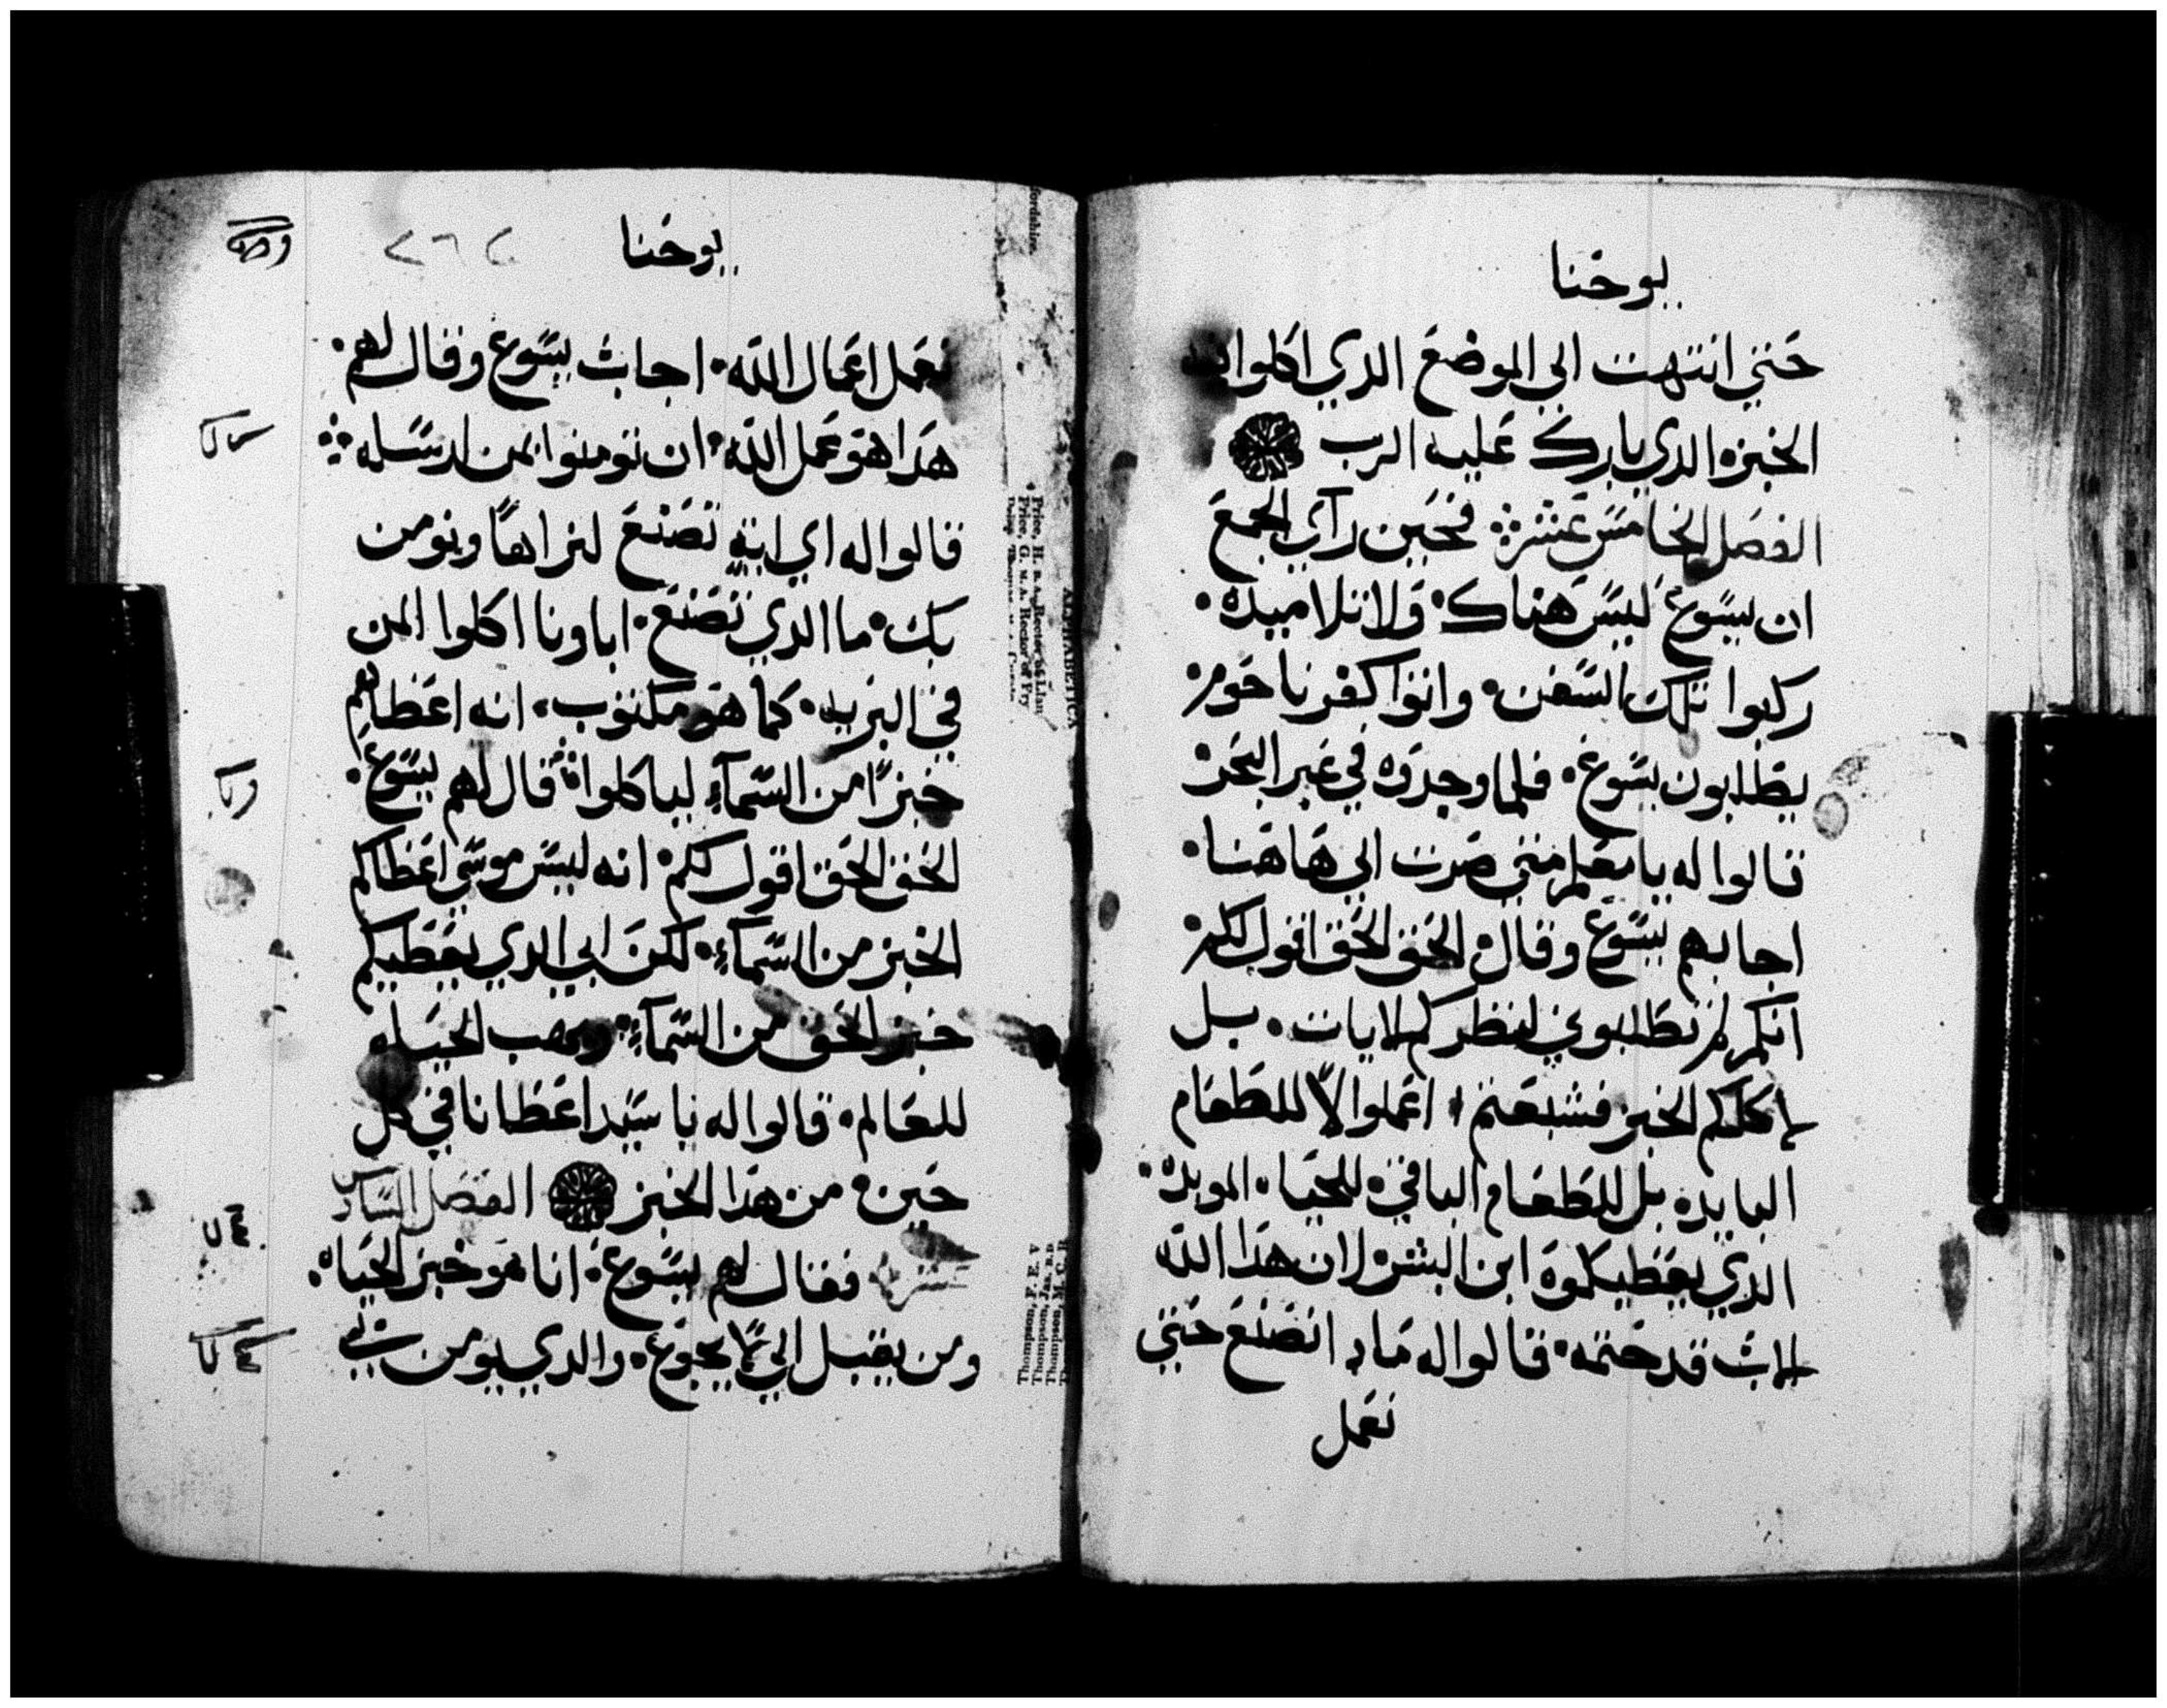 يوحنا
حتي انتهت الي الموضع الدي اكلوا فيه
الخبز الدي بارك عليه الرب
الفصل الخامس عشر فحين راي الجمع
ان يسوع ليس هناك ولا تلاميده
ركبوا تلك السفن واتوا كفرناحوم
يطلبون يسوع فلما وجدوه في عبر البحر
قالوا له يا معلم متي صرت الي هاهنا
اجابهم يسوع وقال الحق الحق اقول لكم
انكم لم تطلبوني لنظركم الايات بل
لاكلكم الخبز فشبعتم اعملوا لا للطعام
البايد بل للطعام الباقي للحياه الموبده
الدي يعطيكموه ابن البشر لان هدا الله
الاب قد ختمه قالوا له مادا نصنع حتي
نعمل
يوحنا
٢٦٢
نعمل اعمال الله اجاب يسوع وقال لهم
هدا هو عمل الله ان تومنوا بمن ارسله
قالوا له اي ايه تصنع لنراها ونومن
بك ما الدي تصنع اباونا اكلوا المن
في البريه كما هو مكتوب انه اعطاهم
خبزًا من السمآء لياكلوا قال لهم يسوع
الحق الحق اقول لكم انه ليس موسي اعطاكم
الخبز من السمآء لكن ابي الدي يعطيكم
خبز الحق من السمآء ويهب الحياه
للعالم قالوا له يا سيد اعطانا في كل
حين من هدا الخبز الفصل السادس
عشر فقال لهم يسوع انا هو خبز الحياه
ومن يقبل الي لا يجوع والدي يومن بي
ALPHABETICA
Price, H. B.A. Rector of Llan
Price, G. M.A. Rector of Fry
Thompson, F. E. V
Thompson, Jas. B.D.
Thompson, M. C. R